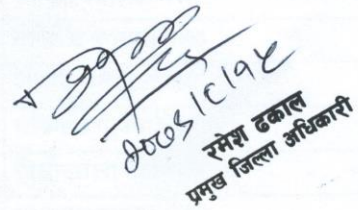 २००९।८।१५
रमेश ढकाल
प्रमुख जिल्ला अधिकारी